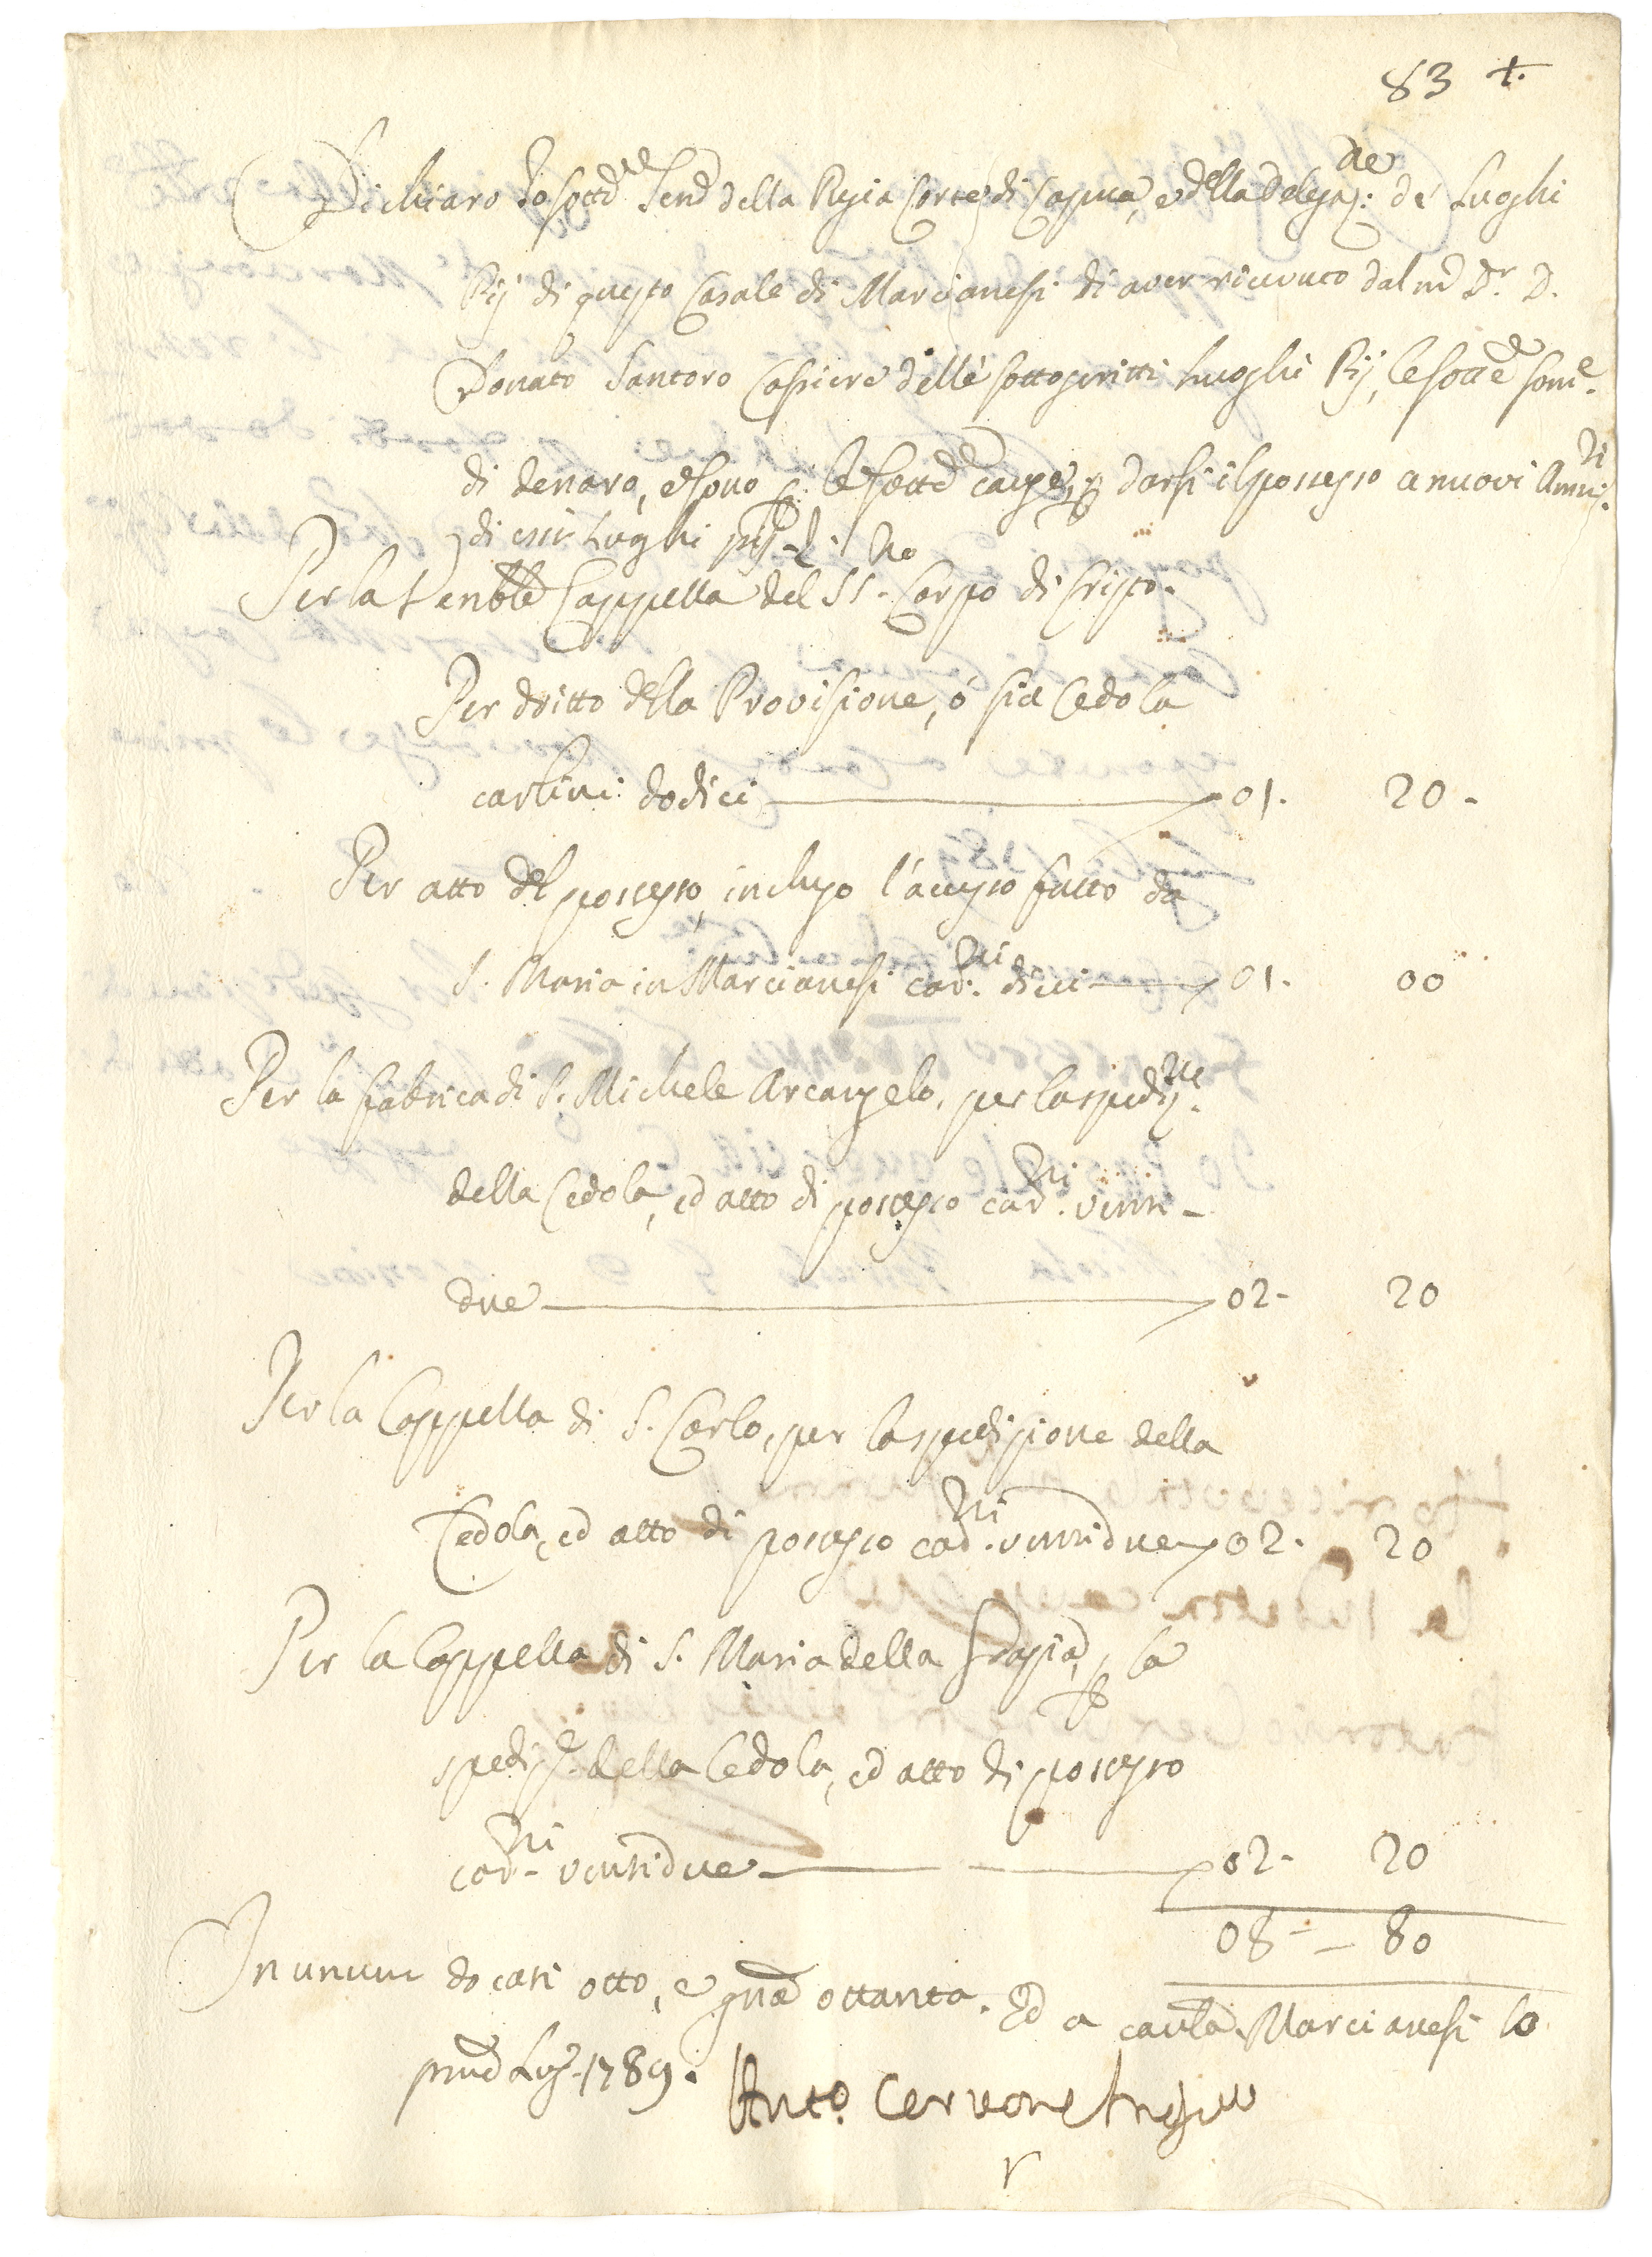 83 +.
Dichiaro Io sott.d Scrid della Regia Corte di Capua, e della Delegaz.ne: de' Luoghi
Pij di questo Casale di Marcianesi di aver ricevuto dal md Dr. D.
Donato Santoro Cassiere delle sottoscritti Luoghi Pij, le sotte some.
di denaro, e sono le sottd cause, p darsi il possesso a nuovi Amm.ri
di essi Luoghi pij
Per la Venble Cappella del SS.mo Corpo di Cristo.
Per dritto della Provisione, ó sia Cedola
carlini: dodici 01. 20-
Per atto del possesso, incluso l'accesso fatto da
S. Maria in Marcianesi car.ni dieci 01. 00
Per la fabrica di S. Michele Arcangelo, per la spediz.ne
della Cedola, ed atto di possesso car.ni venti-
due 02- 20
Per la Cappella di S. Carlo, per la spedizione della
Cedola, ed atto di possesso car.ni ventidue 02. 20
Per la Cappella di S. Maria della Grazia, p la
spediz.e della Cedola, ed atto di possesso
car.ni ventidue 02- 20
08 - 80
In unum docati otto, e gna ottanta. Ed a caula. Marcianesi lo
pmo Lug. 1789.
Anto. Cervone